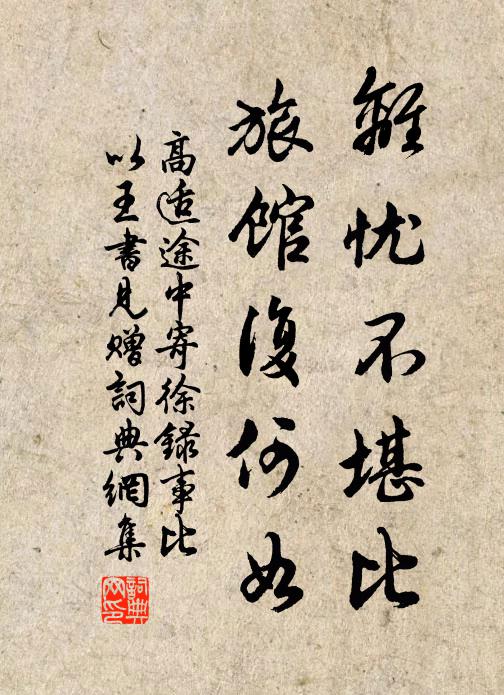 離忧不堪比
旅館復何如
高适途中寄徐録事比
以王書見赠詞典網集
詞典网印